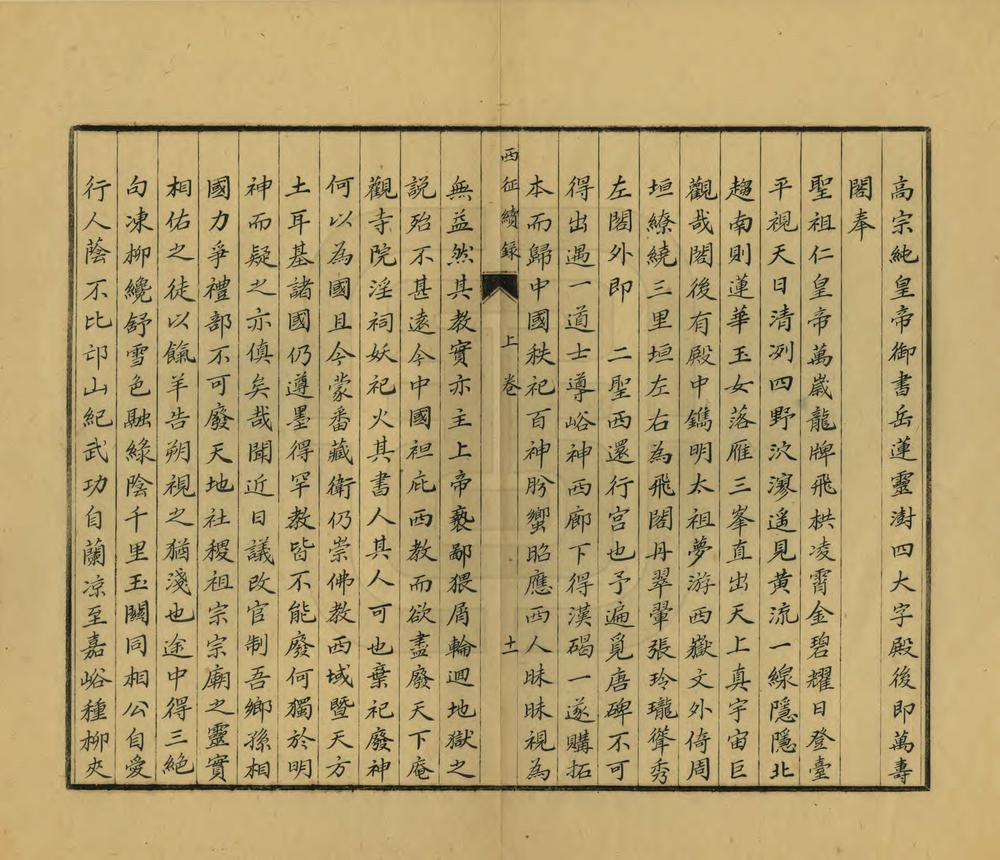 高宗純皇帝御書岳蓮靈澍四大字殿後即萬壽
閣奉
聖祖仁皇帝萬歲龍牌飛栱凌霄金碧耀日登臺
平視天日清冽四野泬漻遙見黃流一線隱隱北
趨南則蓮華玉女落雁三峯直出天上真宇宙巨
觀哉閣後有殿中鐫明太祖夢游西嶽文外倚周
垣繚繞三里垣左右為飛閣丹翠翬張玲瓏聳秀
左閣外即 二聖西還行宮也予遍覓唐碑不可
得出遇一道士導峪神西廊下得漢碣一遂購拓
本而歸中國秩祀百神肹蠁昭應西人昧昧視為
西征續錄 上卷 十一
無益然其教實亦主上帝褻鄙猥屑輪迴地獄之
說殆不甚遠今中國袒庇西教而欲盡廢天下庵
觀寺院淫祠妖祀火其書人其人可也棄祀廢神
何以為國且今蒙番藏衛仍崇佛教西域暨天方
土耳基諸國仍遵墨得罕教皆不能廢何獨於明
神而疑之亦傎矣哉聞近日議改官制吾鄉孫相
國力爭禮部不可廢天地社稷祖宗宗廟之靈實
相佑之徒以餼羊告朔視之猶淺也途中得三絕
句凍柳纔舒雪色融綠陰千里玉關同相公自愛
行人蔭不比邙山紀武功自蘭涼至嘉峪種柳夾